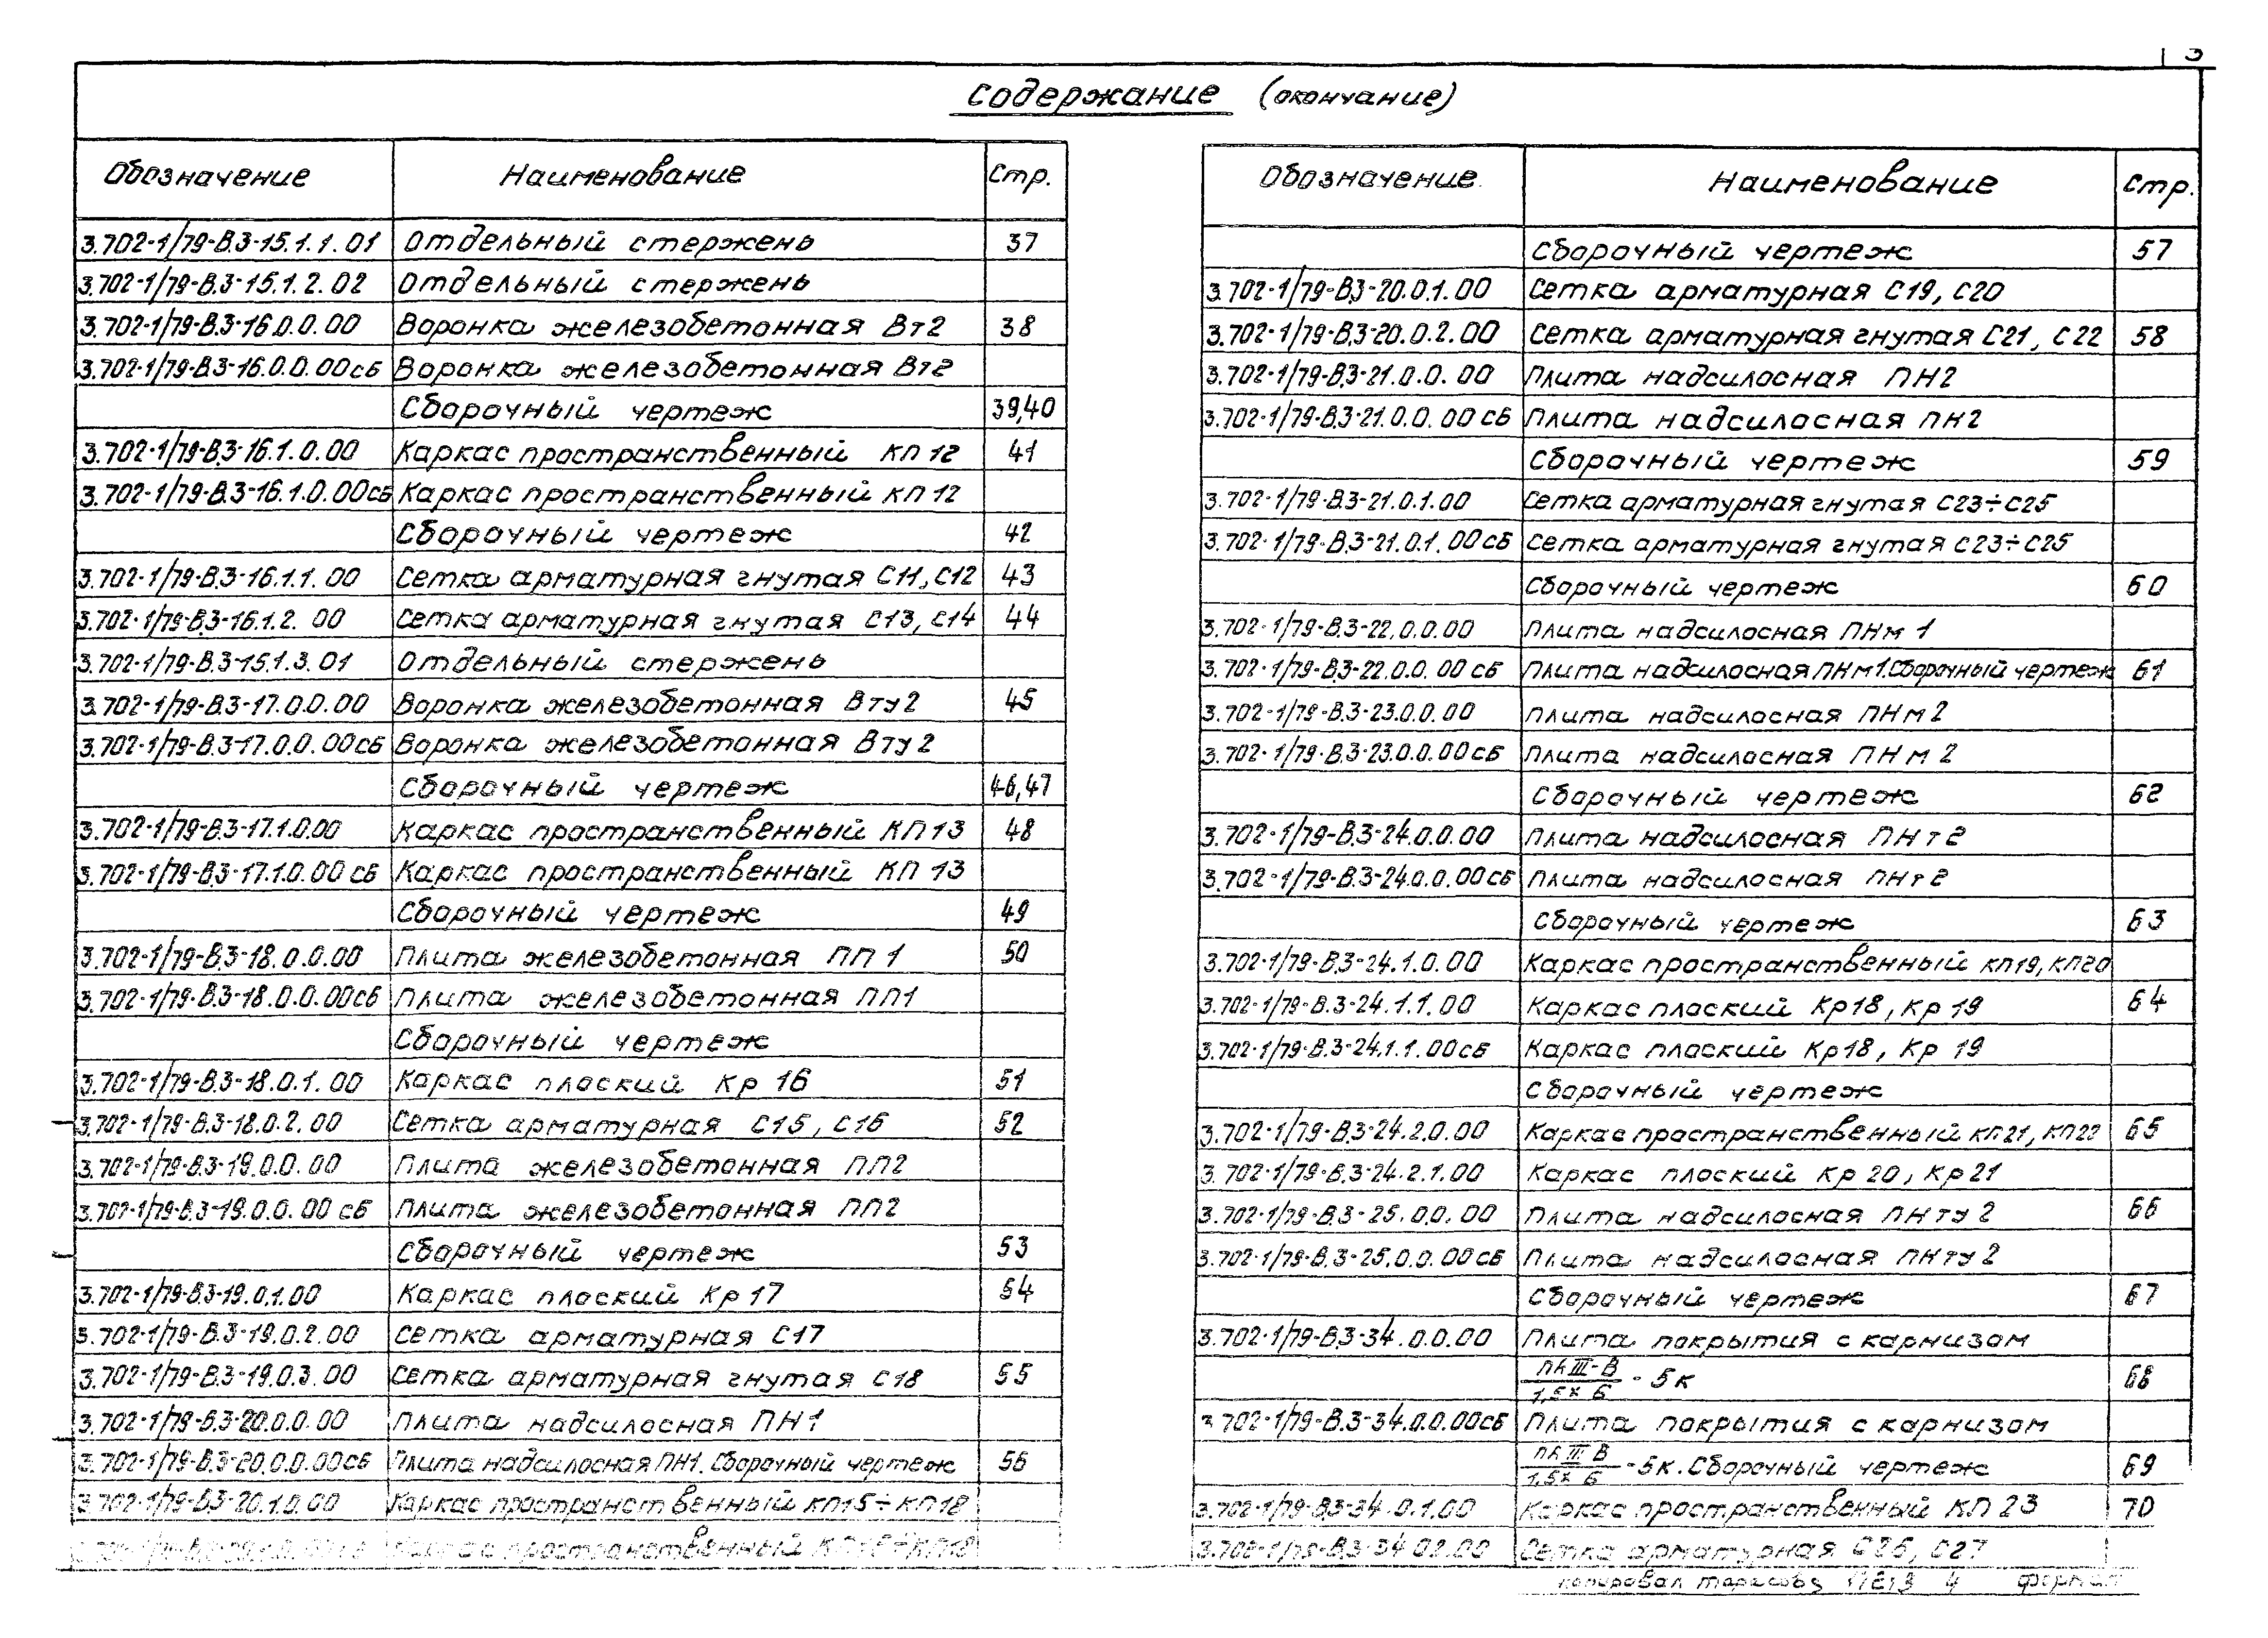 3
Содержание (окончание)
Обозначение Наименование Стр.
3.702-1/79-В.3-15.1.1.01 Отдельный стержень 37
3.702-1/79-В.3-15.1.2.02 Отдельный стержень
3.702-1/79-В.3-16.0.0.00 Воронка железобетонная Вт2 38
3.702-1/79-В.3-16.0.0.00сб Воронка железобетонная Вт2
Сборочный чертеж 39,40
3.702-1/79-В.3-16.1.0.00 Каркас пространственный КП 12 41
3.702-1/79-В.3-16.1.0.00сб Каркас пространственный КП 12
Сборочный чертеж 42
3.702-1/79-В.3-16.1.1.00 Сетка арматурная гнутая С11, С12 43
3.702-1/79-В.3-16.1.2.00 Сетка арматурная гнутая С13, С14 44
3.702-1/79-В.3-15.1.3.01 Отдельный стержень
3.702-1/79-В.3-17.0.0.00 Воронка железобетонная Вту2 45
3.702-1/79-В.3-17.0.0.00сб Воронка железобетонная Вту2
Сборочный чертеж 46,47
3.702-1/79-В.3-17.1.0.00 Каркас пространственный КП 13 48
3.702-1/79-В.3-17.1.0.00сб Каркас пространственный КП 13
Сборочный чертеж 49
3.702-1/79-В.3-18.0.0.00 Плита железобетонная ПП 1 50
3.702-1/79-В.3-18.0.0.00сб Плита железобетонная ПП1
Сборочный чертеж
3.702-1/79-В.3-18.0.1.00 Каркас плоский Кр 16 51
3.702-1/79-В.3-18.0.2.00 Сетка арматурная С15, С16 52
3.702-1/79-В.3-19.0.0.00 Плита железобетонная ПП2
3.702-1/79-В.3-19.0.0.00сб Плита железобетонная ПП2
Сборочный чертеж 53
3.702-1/79-В.3-19.0.1.00 Каркас плоский Кр 17 54
3.702-1/79-В.3-19.0.2.00 Сетка арматурная С17
3.702-1/79-В.3-19.0.3.00 Сетка арматурная гнутая С18 55
3.702-1/79-В.3-20.0.0.00 Плита надсилосная ПН1
3.702-1/79-В.3-20.0.0.00сб Плита надсилосная ПН1. Сборочный чертеж 56
3.702-1/79-В.3-20.1.0.00 Каркас пространственный КП15÷КП18
Каркас пространственный КП15÷КП18
Обозначение Наименование Стр.
Сборочный чертеж 57
3.702-1/79-В.3-20.0.1.00 Сетка арматурная С19, С20
3.702-1/79-В.3-20.0.2.00 Сетка арматурная гнутая С21, С22 58
3.702-1/79-В.3-21.0.0.00 Плита надсилосная ПН2
3.702-1/79-В.3-21.0.0.00сб Плита надсилосная ПН2
Сборочный чертеж 59
3.702-1/79-В.3-21.0.1.00 Сетка арматурная гнутая С23÷С25
3.702-1/79-В.3-21.0.1.00сб Сетка арматурная гнутая С23÷С25
Сборочный чертеж 60
3.702-1/79-В.3-22.0.0.00 Плита надсилосная ПНм 1
3.702-1/79-В.3-22.0.0.00сб Плита надсилосная ПНм1. Сборочный чертеж 61
3.702-1/79-В.3-23.0.0.00 Плита надсилосная ПНм 2
3.702-1/79-В.3-23.0.0.00сб Плита надсилосная ПНм 2
Сборочный чертеж 62
3.702-1/79-В.3-24.0.0.00 Плита надсилосная ПНт 2
3.702-1/79-В.3-24.0.0.00сб Плита надсилосная ПНт 2
Сборочный чертеж 63
3.702-1/79-В.3-24.1.0.00 Каркас пространственный КП19, КП20
3.702-1/79-В.3-24.1.1.00 Каркас плоский Кр18, Кр 19 64
3.702-1/79-В.3-24.1.1.00сб Каркас плоский Кр18, Кр 19
Сборочный чертеж
3.702-1/79-В.3-24.2.0.00 Каркас пространственный КП21, КП22 65
3.702-1/79-В.3-24.2.1.00 Каркас плоский Кр 20, Кр 21
3.702-1/79-В.3-25.0.0.00 Плита надсилосная ПНту 2 66
3.702-1/79-В.3-25.0.0.00сб Плита надсилосная ПНту 2
Сборочный чертеж 67
3.702-1/79-В.3-34.0.0.00 Плита покрытия с карнизом
ПА III-В / 1,5×6 - 5к 68
3.702-1/79-В.3-34.0.0.00сб Плита покрытия с карнизом
ПА III-В / 1,5×6 - 5к. Сборочный чертеж 69
3.702-1/79-В.3-34.0.1.00 Каркас пространственный КП 23 70
3.702-1/79-В.3-34.0.2.00 Сетка арматурная С26, С27
копировал Тарасова 4 формат